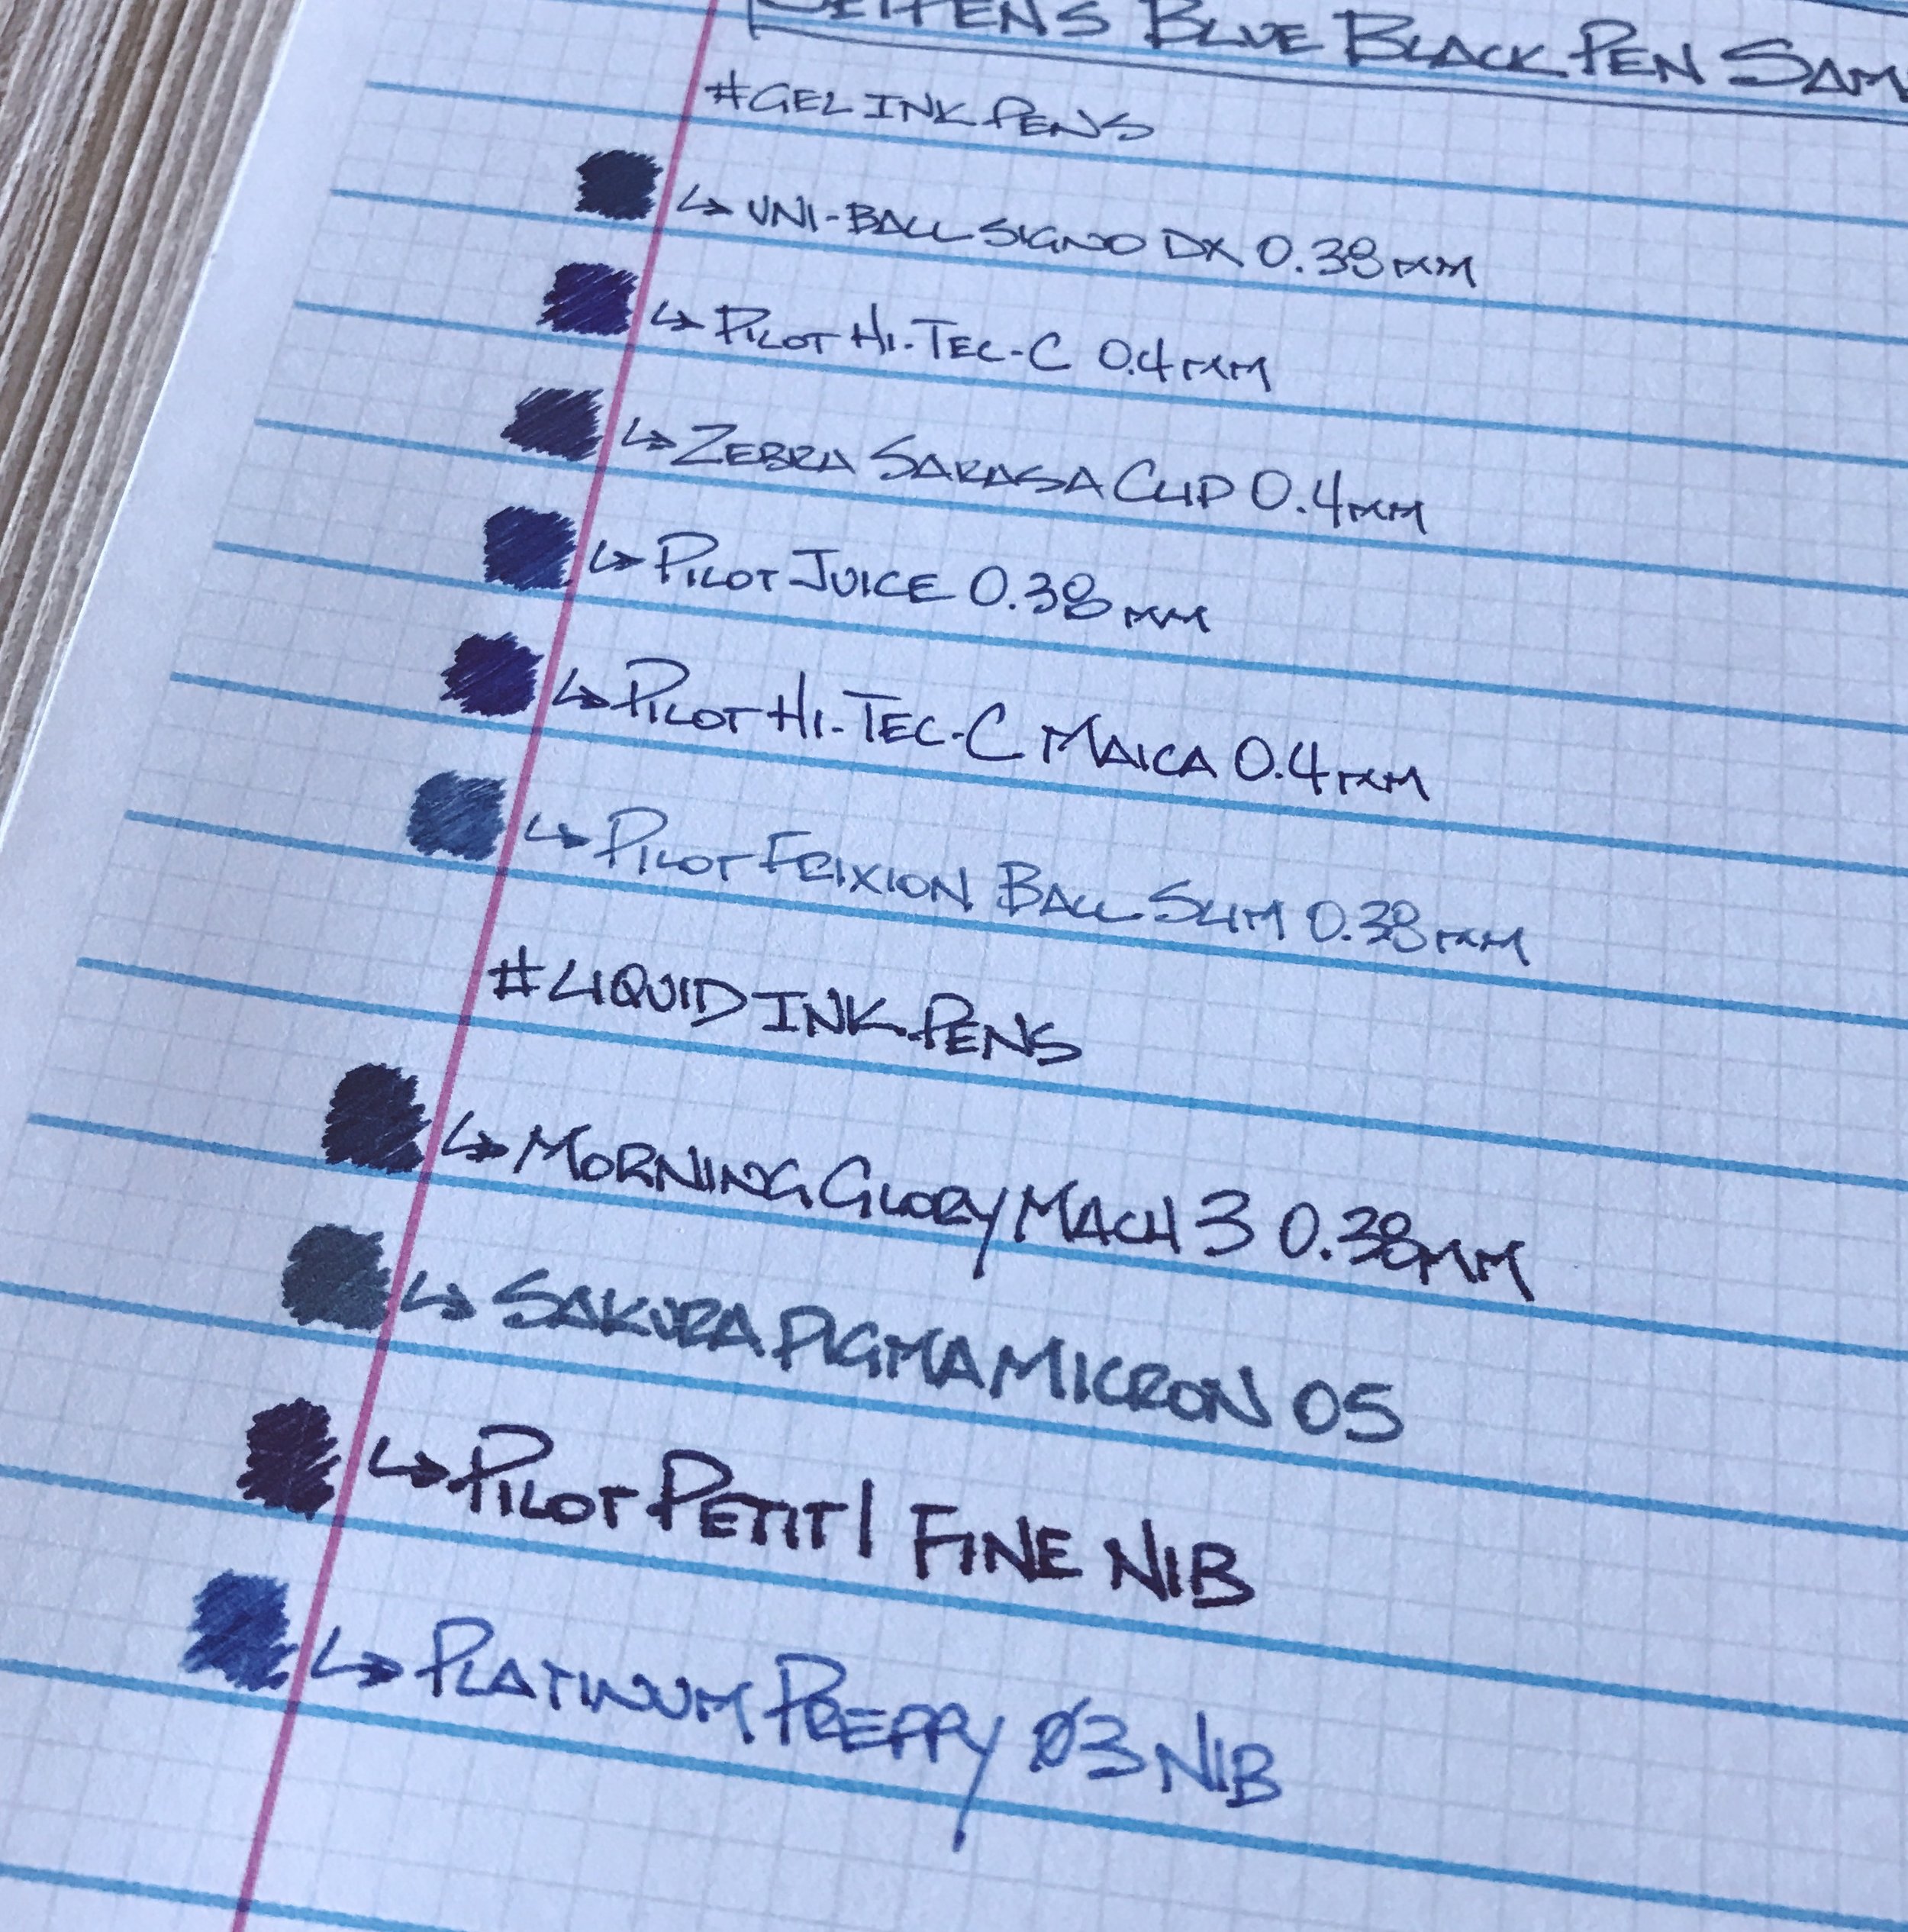 JETPENS BLUE BLACK PEN SAM
#GEL INK PENS
↳ UNI-BALL SIGNO DX 0.38mm
↳ PILOT HI-TEC-C 0.4mm
↳ ZEBRA SARASA CLIP 0.4mm
↳ PILOT JUICE 0.38mm
↳ PILOT HI-TEC-C MAICA 0.4mm
↳ PILOT FRIXION BALL SLIM 0.38mm
#LIQUID INK PENS
↳ MORNING GLORY MACH 3 0.38mm
↳ SAKURA PIGMA MICRON 05
↳ PILOT PETIT1 FINE NIB
↳ PLATINUM PREPPY Ø3 NIB